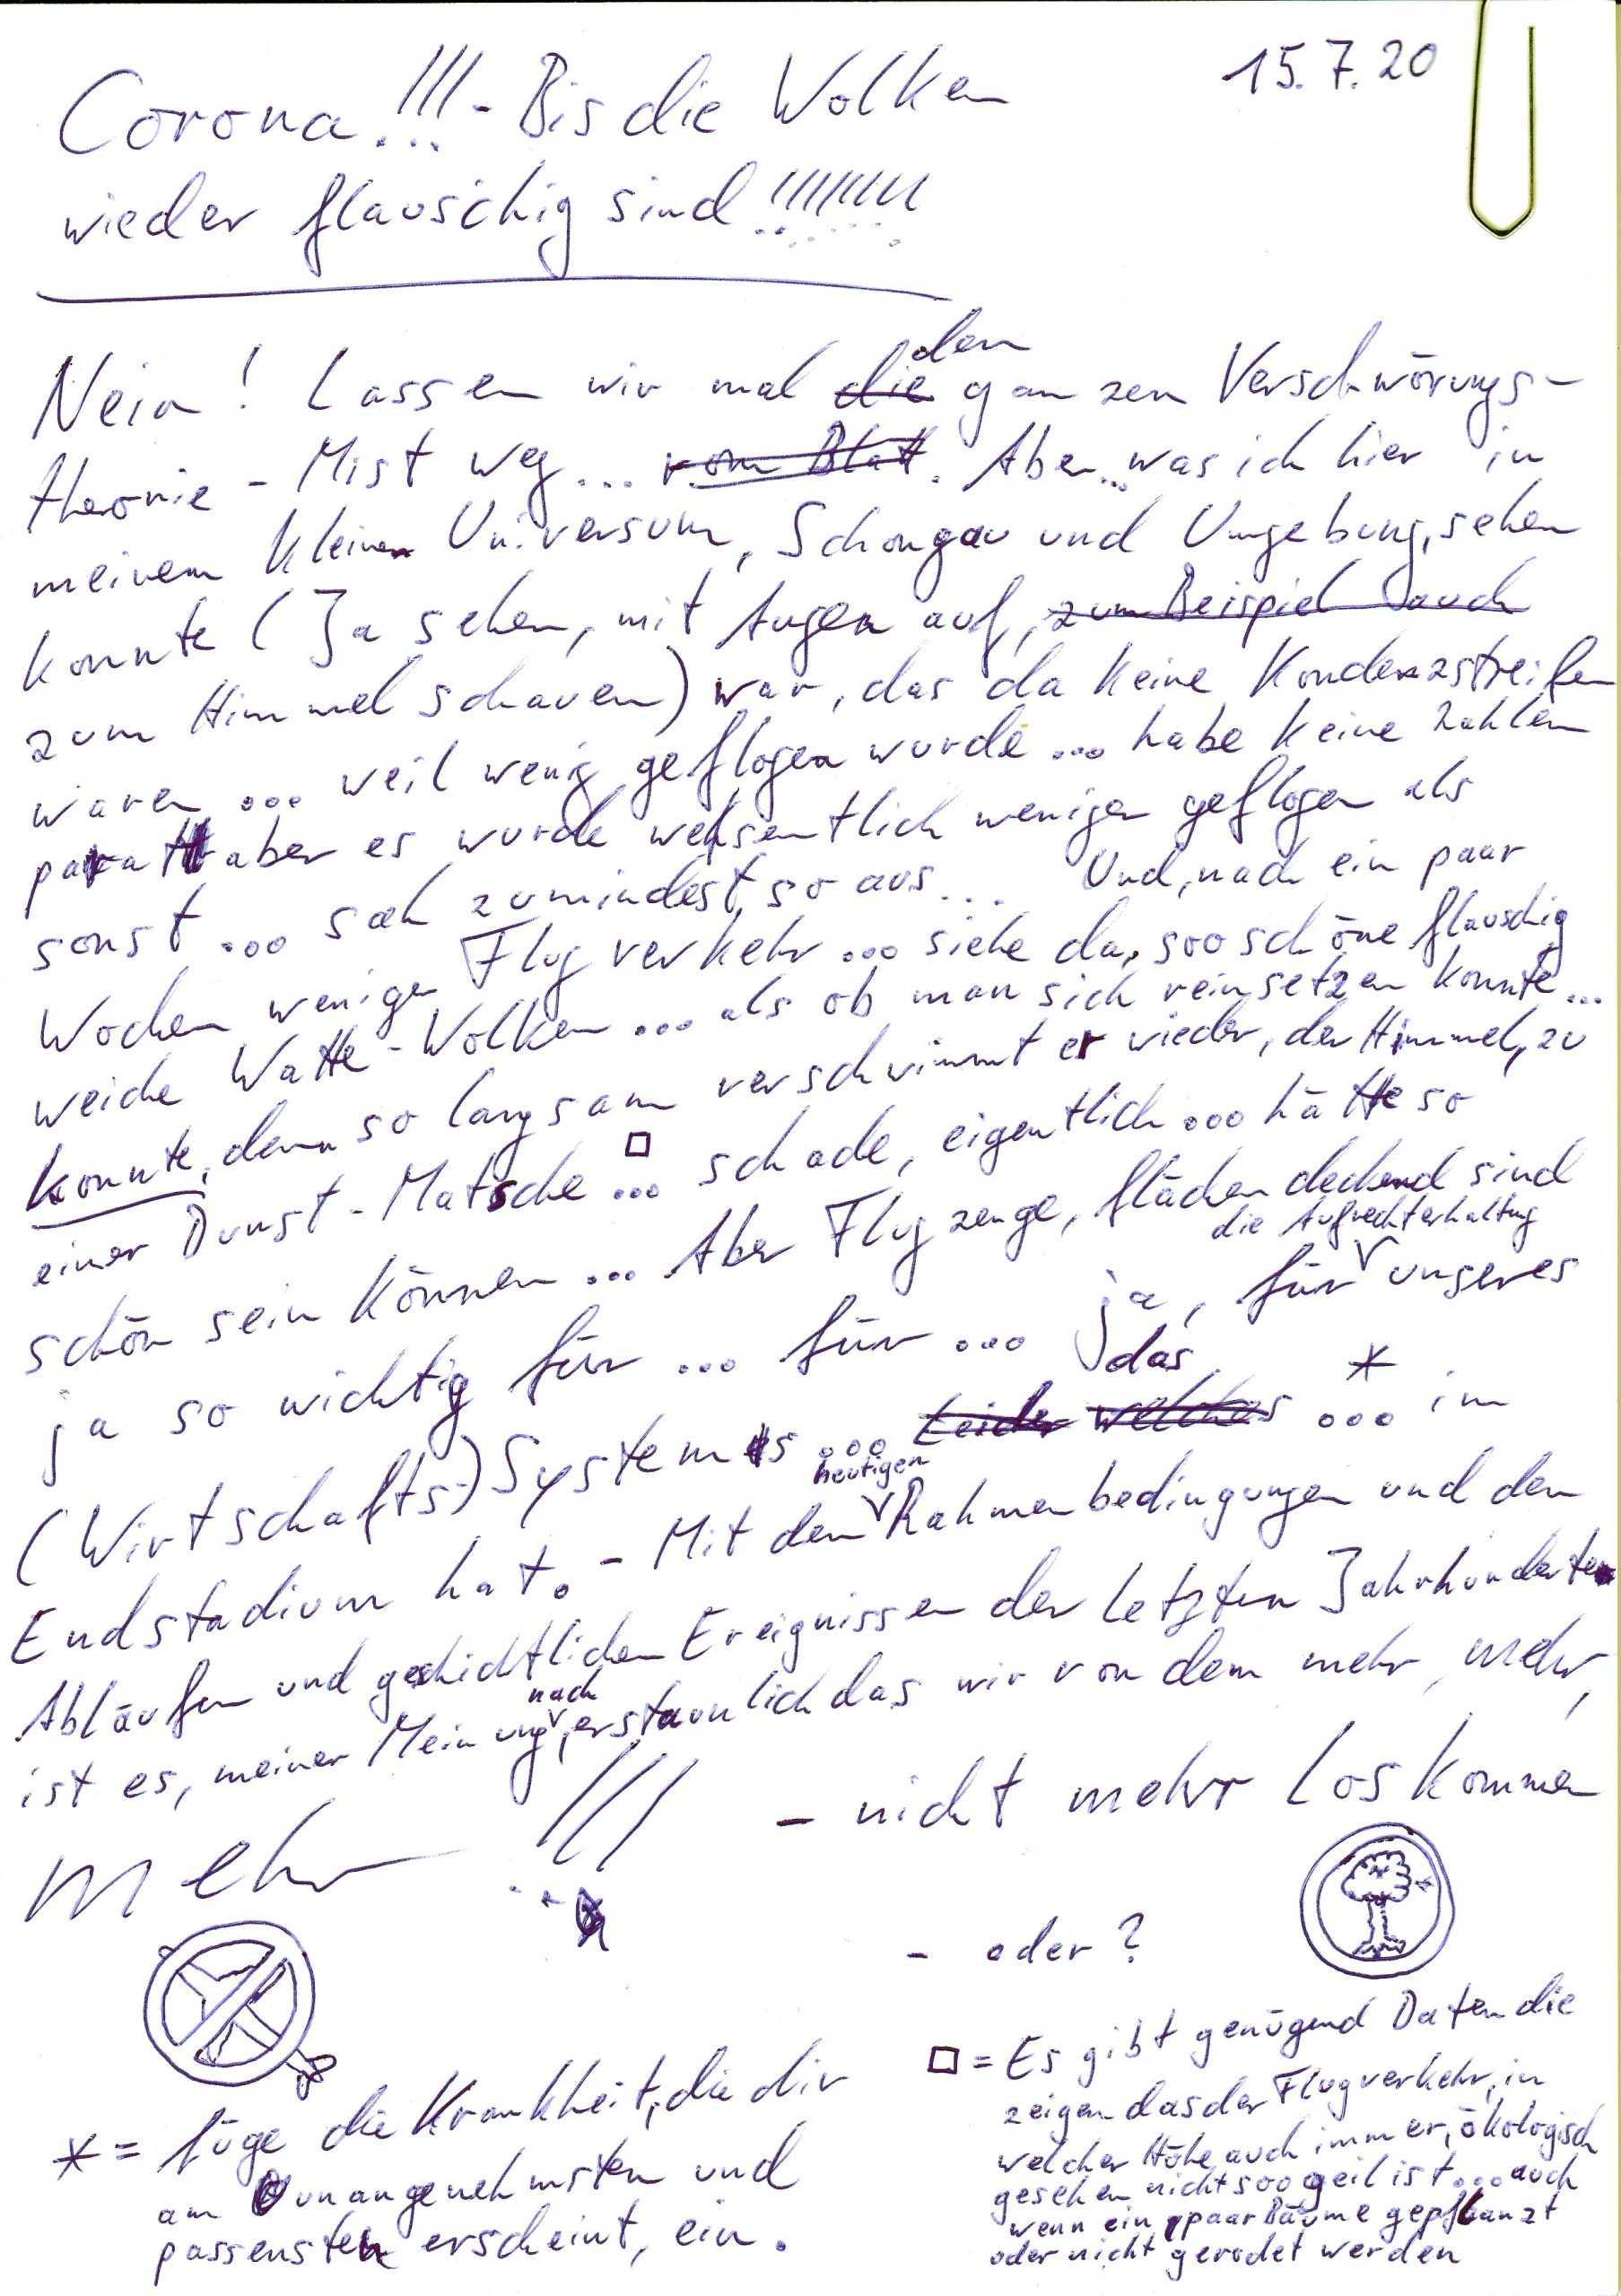 15.7.20
Corona!!! - Bis die Wolken
wieder flauschig sind!!!!!!!!
Nein! Lassen wir mal die den ganzen Verschwörungs-
theorie - Mist weg... vom Blatt. Aber... was ich hier in
meinem kleinen Universum, Schongau und Umgebung, sehen
konnte (Ja sehen, mit Augen auf, zum Beispiel auch
zum Himmel schauen) war, das da keine Kondenzstreifen
waren ... weil wenig geflogen wurde ... habe keine Zahlen
parat aber es wurde wehsentlich weniger geflogen als
sonst ... sah zumindest so aus... Und, nach ein paar
Wochen weniger Flugverkehr ... siehe da, soo schöne flauschig
weiche Watte-Wolken ... als ob man sich reinsetzen konnte...
konnte, denn so langsam verschwimmt er wieder, der Himmel, zu
einer Dunst-Matsche ... □ schade, eigentlich ... hätte so
schön sein können ... Aber Flugzeuge, flächendeckend sind
die Aufrechterhaltung
ja so wichtig für ... für ... ja, für unseres
(Wirtschafts-)Systems ... Leider welches das ... * im
Endstadium hat. - Mit den heutigen Rahmenbedingungen und den
Abläufen und geschichtlichen Ereignissen der letzten Jahrhunderte
ist es, meiner Meinung nach, erstaunlich das wir von dem mehr, mehr,
mehr !!!
- nicht mehr loskommen
- oder?
* = füge die Krankheit, die dir
am unangenehmsten und
passensten erscheint, ein.
□ = Es gibt genügend Daten die
zeigen das der Flugverkehr, in
welcher Höhe auch immer, ökologisch
gesehen nicht soo geil ist... auch
wenn ein paar Bäume gepflanzt
oder nicht gerodet werden